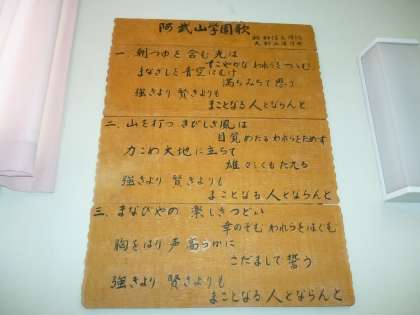 阿武山学園歌
一、朝つゆを含む光は
すこやかな われらをつつむ
まなざしを青空にむけ
満ちみちて思う
強きより 賢きよりも
まことなる 人とならんと
二、山を打つ きびしき風は
目覚めたる われらをためす
力こめ大地に立ちて
雄々しくも たえる
強きより 賢きよりも
まことなる 人とならんと
三、まなびやの 楽しきつどい
幸のぞむ われらをはぐくむ
胸をはり 声高らかに
こだまして誓う
強きより 賢きよりも
まことなる 人とならんと